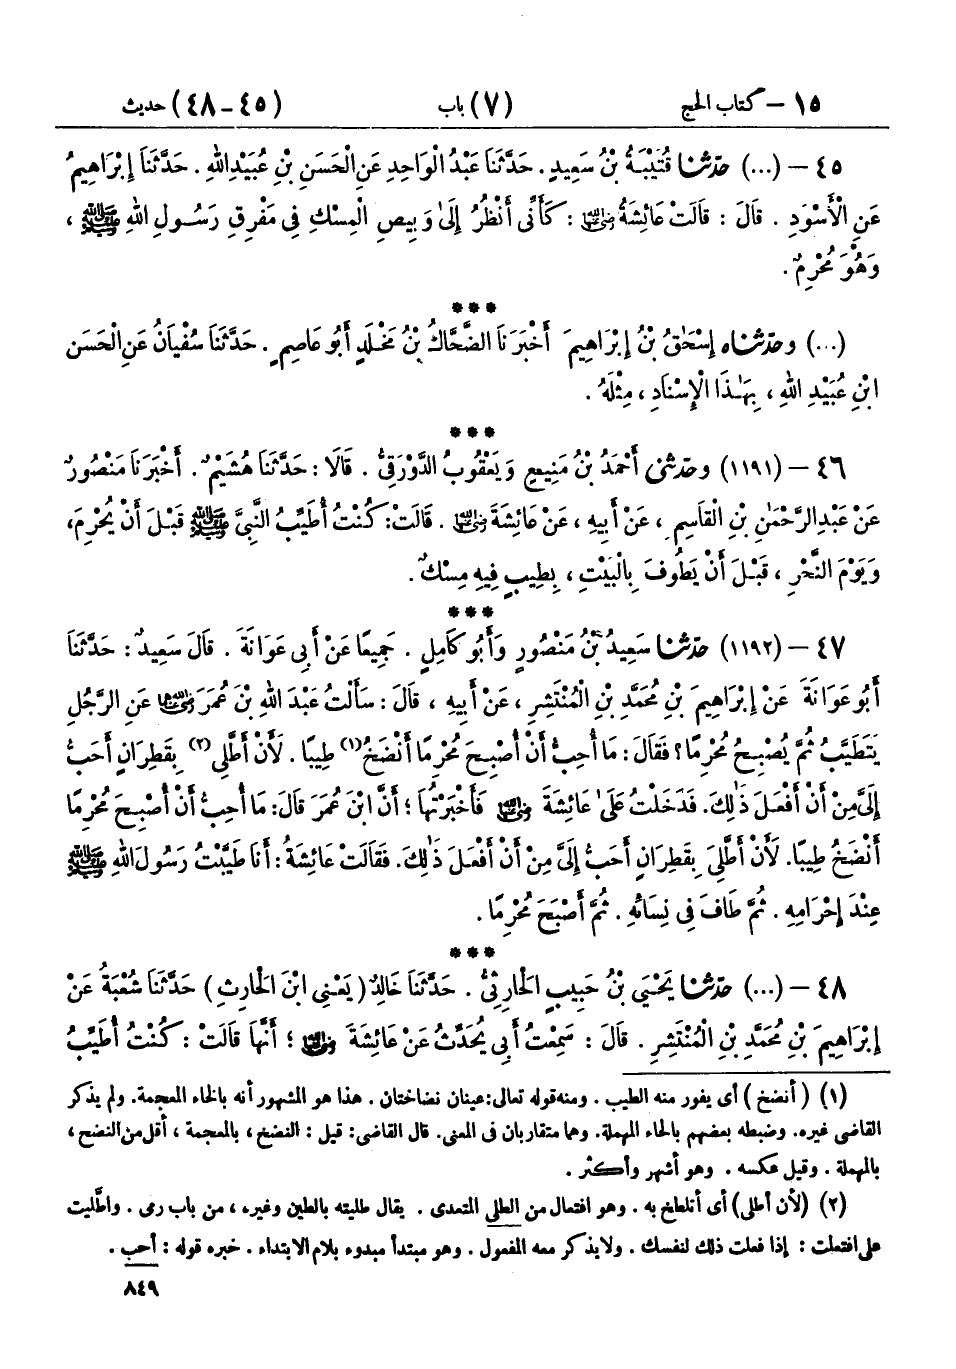 ١٥ – كتاب الحج (٧) باب (٤٥ – ٤٨) حديث
٤٥ – (...) حَدَّثَنَا قُتَيْبَةُ بْنُ سَعِيدٍ . حَدَّثَنَا عَبْدُ الْوَاحِدِ عَنِ الْحَسَنِ بْنِ عُبَيْدِ اللهِ . حَدَّثَنَا إِبْرَاهِيمُ
عَنِ الْأَسْوَدِ . قَالَ : قَالَتْ عَائِشَةُ رضي الله عنها : كَأَنِّي أَنْظُرُ إِلَىٰ وَبِيصِ الْمِسْكِ فِي مَفْرِقِ رَسُولِ اللهِ ﷺ ،
وَهُوَ مُحْرِمٌ .
***
(...) وحَدَّثَنَاه إِسْحَٰقُ بْنُ إِبْرَاهِيمَ أَخْبَرَنَا الضَّحَّاكُ بْنُ مَخْلَدٍ أَبُو عَاصِمٍ . حَدَّثَنَا سُفْيَانُ عَنِ الْحَسَنِ
ابْنِ عُبَيْدِ اللهِ ، بِهَٰذَا الْإِسْنَادِ ، مِثْلَهُ .
***
٤٦ – (١١٩١) وحَدَّثَنِي أَحْمَدُ بْنُ مَنِيعٍ وَيَعْقُوبُ الدَّوْرَقِيُّ . قَالَا : حَدَّثَنَا هُشَيْمٌ . أَخْبَرَنَا مَنْصُورٌ
عَنْ عَبْدِ الرَّحْمَٰنِ بْنِ الْقَاسِمِ ، عَنْ أَبِيهِ ، عَنْ عَائِشَةَ رضي الله عنها . قَالَتْ : كُنْتُ أُطَيِّبُ النَّبِيَّ ﷺ قَبْلَ أَنْ يُحْرِمَ ،
وَيَوْمَ النَّحْرِ ، قَبْلَ أَنْ يَطُوفَ بِالْبَيْتِ ، بِطِيبٍ فِيهِ مِسْكٌ .
***
٤٧ – (١١٩٢) حَدَّثَنَا سَعِيدُ بْنُ مَنْصُورٍ وَأَبُو كَامِلٍ . جَمِيعًا عَنْ أَبِي عَوَانَةَ . قَالَ سَعِيدٌ : حَدَّثَنَا
أَبُو عَوَانَةَ عَنْ إِبْرَاهِيمَ بْنِ مُحَمَّدِ بْنِ الْمُنْتَشِرِ ، عَنْ أَبِيهِ ، قَالَ : سَأَلْتُ عَبْدَ اللهِ بْنَ عُمَرَ رضي الله عنهما عَنِ الرَّجُلِ
يَتَطَيَّبُ ثُمَّ يُصْبِحُ مُحْرِمًا ؟ فَقَالَ : مَا أُحِبُّ أَنْ أُصْبِحَ مُحْرِمًا أَنْضَخُ (١) طِيبًا . لَأَنْ أَطَّلِيَ (٢) بِقَطِرَانٍ أَحَبُّ
إِلَيَّ مِنْ أَنْ أَفْعَلَ ذَٰلِكَ . فَدَخَلْتُ عَلَىٰ عَائِشَةَ رضي الله عنها فَأَخْبَرْتُهَا ؛ أَنَّ ابْنَ عُمَرَ قَالَ : مَا أُحِبُّ أَنْ أُصْبِحَ مُحْرِمًا
أَنْضَخُ طِيبًا . لَأَنْ أَطَّلِيَ بِقَطِرَانٍ أَحَبُّ إِلَيَّ مِنْ أَنْ أَفْعَلَ ذَٰلِكَ . فَقَالَتْ عَائِشَةُ : أَنَا طَيَّبْتُ رَسُولَ اللهِ ﷺ
عِنْدَ إِحْرَامِهِ . ثُمَّ طَافَ فِي نِسَائِهِ . ثُمَّ أَصْبَحَ مُحْرِمًا .
***
٤٨ – (...) حَدَّثَنَا يَحْيَىٰ بْنُ حَبِيبٍ الْحَارِثِيُّ . حَدَّثَنَا خَالِدٌ (يَعْنِي ابْنَ الْحَارِثِ) حَدَّثَنَا شُعْبَةُ عَنْ
إِبْرَاهِيمَ بْنِ مُحَمَّدِ بْنِ الْمُنْتَشِرِ . قَالَ : سَمِعْتُ أَبِي يُحَدِّثُ عَنْ عَائِشَةَ رضي الله عنها ؛ أَنَّهَا قَالَتْ : كُنْتُ أُطَيِّبُ
(١) (أنضخ) أى يفور منه الطيب . ومنه قوله تعالى : عينان نضاختان . هذا هو المشهور أنه بالخاء المعجمة. ولم يذكر
القاضى غيره. وضبطه بعضهم بالحاء المهملة. وهما متقاربان فى المعنى. قال القاضى: قيل : النضخ ، بالمعجمة ، أقل من النضح ،
بالمهملة . وقيل عكسه . وهو أشهر وأكثر .
(٢) (لأن أطلى) أى أتلطخ به . وهو افتعال من الطلى المتعدى . يقال طليته بالطين وغيره ، من باب رمى . واطّليت
على افتعلت : إذا فعلت ذلك لنفسك . ولا يذكر معه المفعول . وهو مبتدأ مبدوء بلام الابتداء . خبره قوله : أحب .
٨٤٩